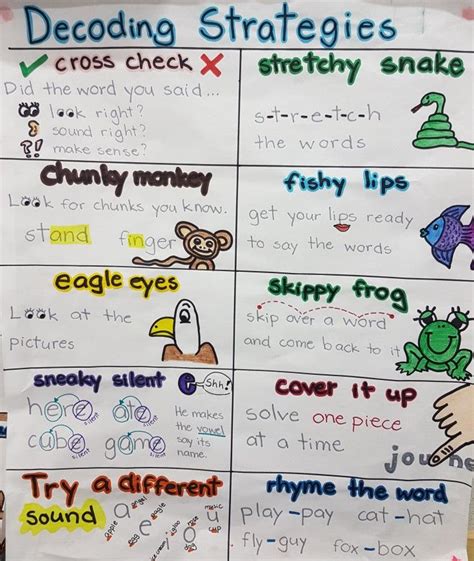 Decoding Strategies
cross check
Did the word you said...
look right?
sound right?
?! make sense?
stretchy snake
s-t-r-e-t-c-h
the words
chunky monkey
Look for chunks you know.
stand finger
fishy lips
get your lips ready
to say the words
eagle eyes
Look at the
pictures
skippy frog
skip over a word
and come back to it
sneaky silent e
Shh!
here silent ate silent
cube silent game silent
He makes
the vowel
say its
name.
cover it up
solve one piece
at a time
journe
Try a different
sound
a apple angel
e egg eagle
i igloo ice cream
o
u music cup
rhyme the word
play-pay cat-hat
fly-guy fox-box